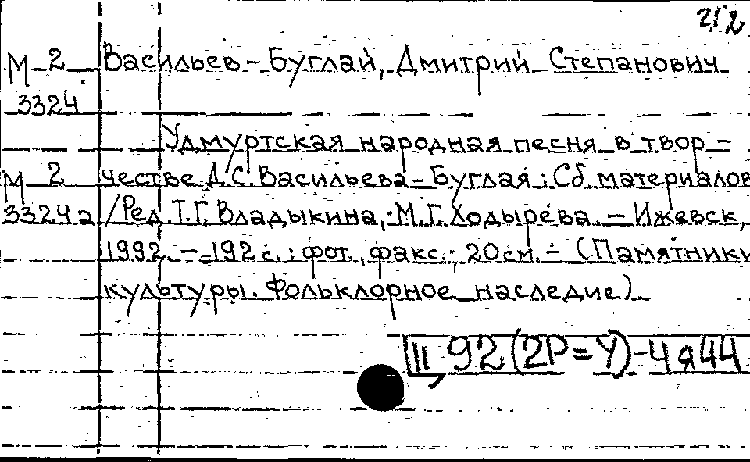 212
М 2 Васильев-Буглай, Дмитрий Степанович
3324
Удмуртская народная песня в твор-
М 2 честве Д.С. Васильева-Буглая: Сб. материалов
3324а /Ред. Т.Г. Владыкина, М.Г. Ходырева. - Ижевск,
1992. - 192 с.: фот., факс.; 20 см. - (Памятники
культуры. Фольклорное наследие).
II 92(2Р=У)-4я44